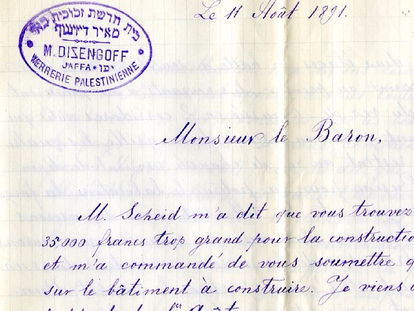 בית חרשת זכוכית בא"י
מאיר דיזענגוף
M. DIZENGOFF
JAFFA · יפו
VERRERIE PALESTINIENNE
Le 11 Août 1891.
Monsieur le Baron,
M. Scheid m'a dit que vous trouvez
35000 francs trop grand pour la constructio
et m'a commandé de vous soumettre
sur le bâtiment à construire. Je viens